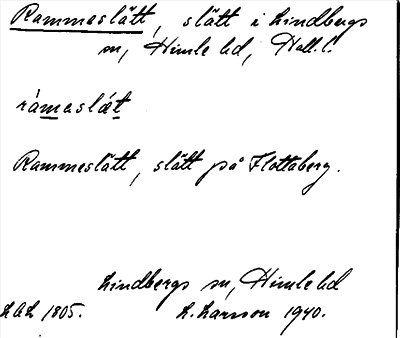 Rammeslätt, slätt i Lindbergs
sn, Himle hd, Hall. l.
ràmaslæt
Rammeslätt, slätt på Flottaberg.
Lindbergs sn, Himle hd
LAL 1805. L. Larsson 1940.